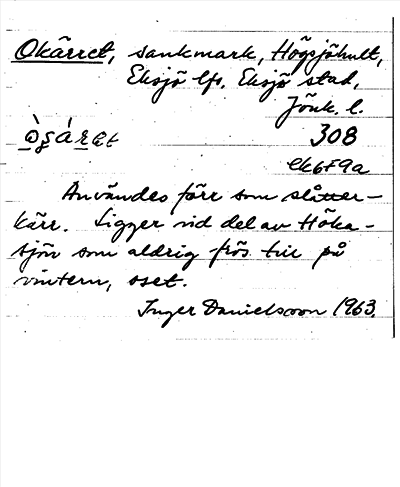 Okärret, sankmark, Högsjöhult,
Eksjö lfs. Eksjö stad,
Jönk. l.
308
Ek6f9a
Användes förr som slåtter-
kärr. Ligger vid del av Höka-
sjön som aldrig frös till på
vintern, oset.
Inger Danielsson 1963.